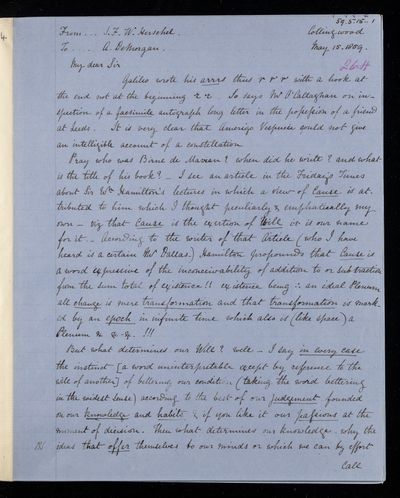 59.5.15.1
From... J.F.W. Herschel. Collingwood
To... A. DeMorgan. May 15. 1859.
My dear Sir
Galileo wrote his arrrs thus r r r with a hook at
the end not at the beginning r r. So says Mr O'Callaghan on in-
spection of a facsimile autograph long letter in the possession of a friend
at Leeds. It is very clear that Amerigo Vespucci could not give
an intelligible account of a constellation
Pray who was de when did he write? and what
is the title of his book? – I see an article in the Friday's Times
about Sir Wm Hamilton's lectures in which a view of Cause is at-
tributed to him which I thought peculiarly & emphatically my
own – viz that Cause is the exertion of Will or is our name
for it – According to the writer of that Article (who I have
heard is a certain Mr Dallas) Hamilton propounds that Cause is
a word expressive of the inconceivability of addition to or subtraction
from the sum total of existence!! existence being ∴ an ideal Plenum
all change is mere transformation and that transformation is mark-
ed by an epoch in infinite time which also is (like space) a
Plenum & &-&. !!!
But what determines our Will? well – I say in every case
the instinct [a word uninterpretable except by reference to the
will of another] of bettering our condition (taking the word bettering
in the widest sense) according to the best of our judgement founded
on our knowledge and habits & if you like it our passions at the
moment of decision. Then what determines our knowledge. why the
ideas that offer themselves to our minds or which we can by effort
Call